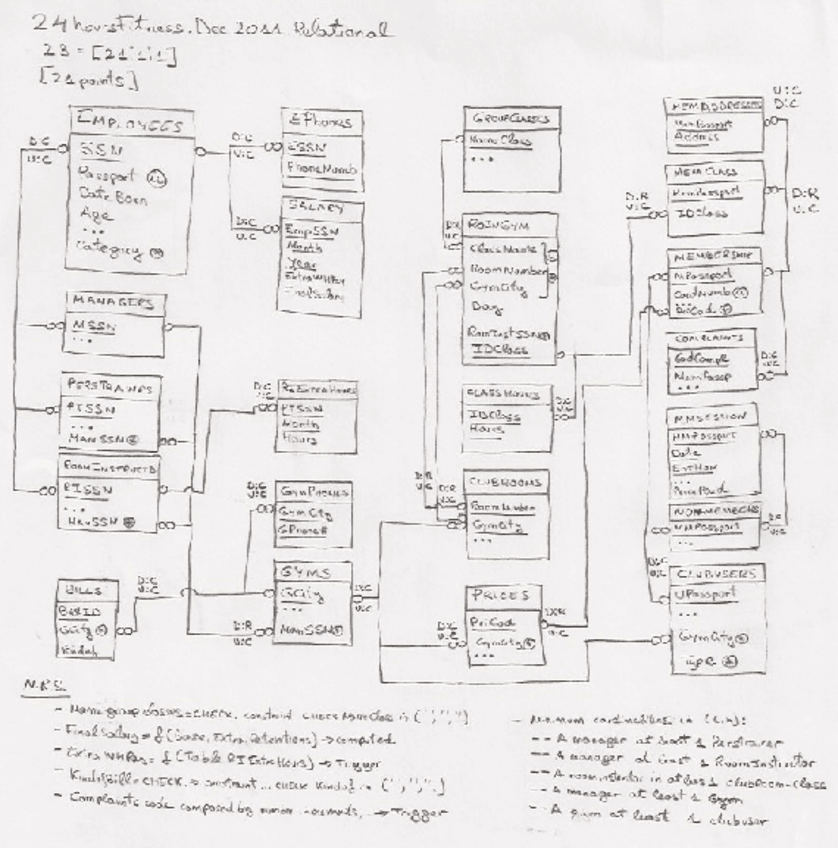 24 hoursFitness. Dec 2011 Relational
23 = [21'1'1]
[21 points]
EMPLOYEES
SSN
Passport
Date Born
Age
...
Category
MANAGERS
MSSN
...
PERSTRAINERS
PTSSN
...
ManSSN
RISSN
...
BILLS
BillID
GCity
KindOf
EPhones
ESSN
PhoneNumb
SALARY
EmpSSN
Month
Year
ExtraWHPay
FinalSalary
PTSSN
Month
Hours
GymPhones
GymCity
GPhone#
GYMS
GCity
...
ManSSN
GROUPCLASSES
NameClass
...
ROINGYM
ClassName
RoomNumber
GymCity
Day
RoomInstSSN
IDClass
CLASSHOURS
IDClass
Hours
CLUBROOMS
RoomNumber
GymCity
...
PRICES
PriCod
GymCity
...
MEMADDRESSES
MemPassport
Address
MEMCLASS
MemPassport
IDClass
MEMBERSHIP
MPassport
CardNumb
COMPLAINTS
CodCompl
MemPassp
...
NMSESSION
NMPassport
Date
...
NONMEMBERS
NMPassport
...
CLUBUSERS
UPassport
...
GymCity
D:C
U:C
D:R
U:C
N.R.S
- Name group classes = CHECK. constraint CHECK NameClass in (',','')
- Final Salary = f (base, Extra, Retentions) -> computed
- Extra WHPay = f (Table RIExtraHours) -> Trigger
- KindOfBill = CHECK -> constraint ... CHECK KindOf in (
- Complaints code composed by -> Trigger
- Minimum cardinalities in (1,n):
-- A manager at least 1 Perstrainer
-- A manager at least 1 RoomInstructor
-- A room instructor in at least 1 clubroom-class
-- A manager at least 1 Gym
-- A gym at least 1 clubuser